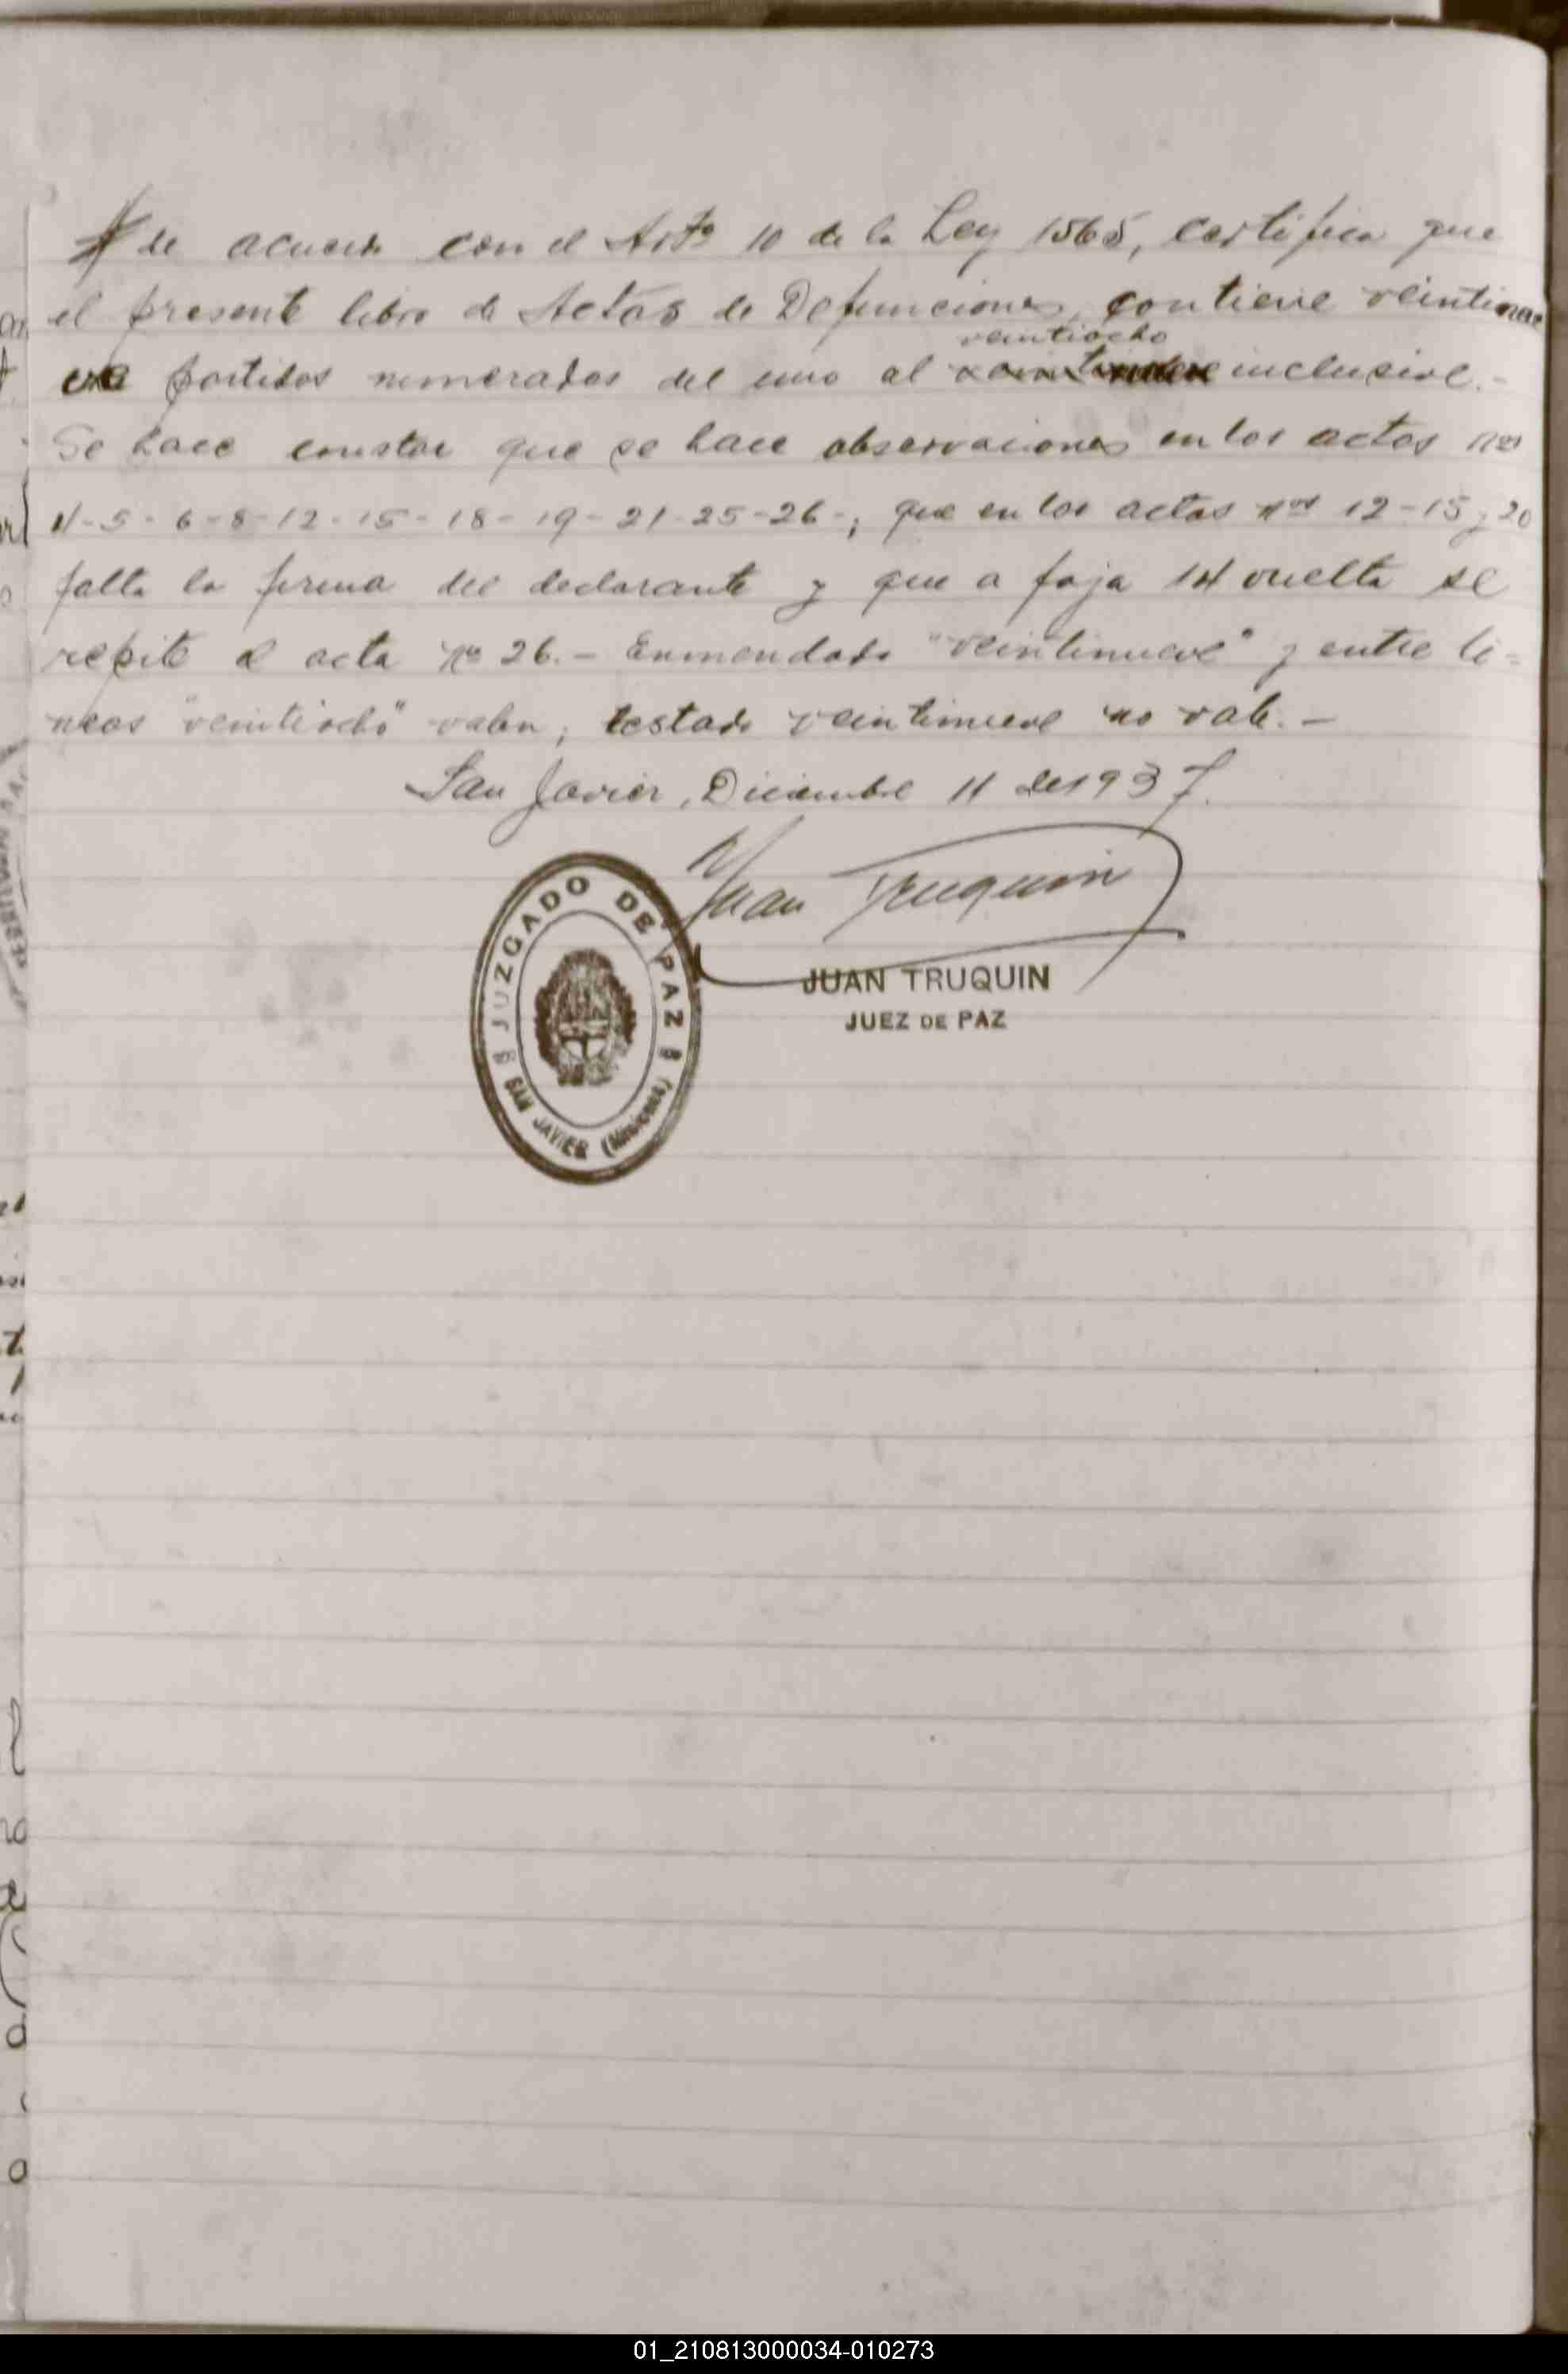 de acuerdo con el Artº 10 de la Ley 1565, certifico que
el presente libro de Actas de Defunciones, contiene veintinue
ve partidas numeradas del uno al veintinueve inclusive.-
veintiocho
Se hace constar que se hace observaciones en las actas nos
4-5-6-8-12-15-18-19-21-25-26-; que en las actas nos 12-15 y 20
falta la firma del declarante y que a foja 14 vuelta se
repite el acta nº 26.- Enmendado "veintinueve" y entre li=
neas "veintiocho" valen; testado veintinueve no vale.-
San Javier, Diciembre 11 de 1937.
Juan Truquin
JUAN TRUQUIN
JUEZ DE PAZ
JUZGADO DE PAZ
SAN JAVIER (Misiones)
01_210813000034-010273